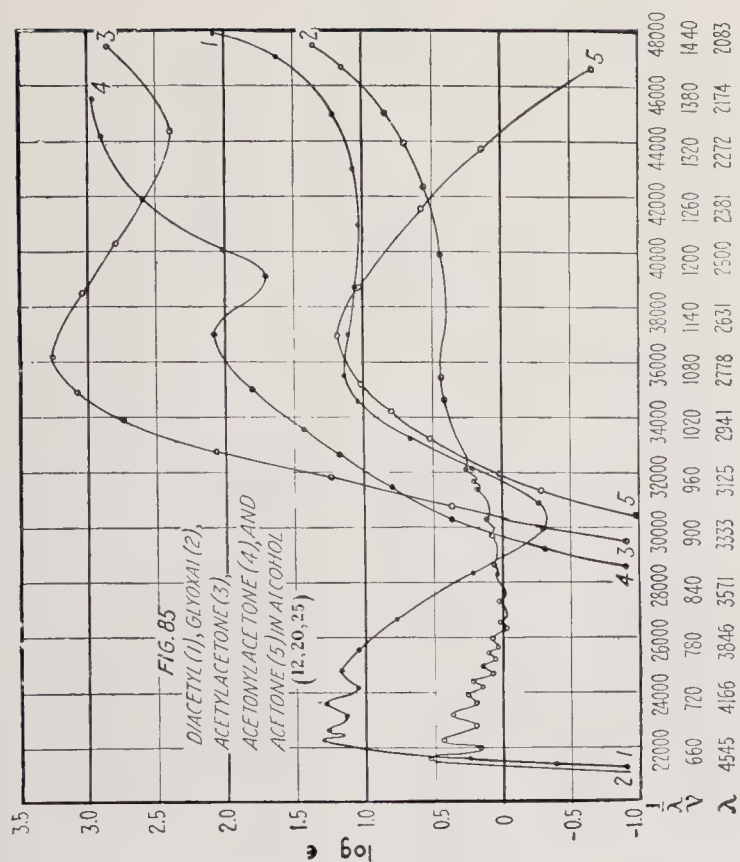 3.5
3.0
2.5
2.0
1.5
1.0
0.5
0
-0.5
-1.0
log ϵ
FIG. 85
DIACETYL (1), GLYOXAL (2),
ACETYLACETONE (3),
ACETONYLACETONE (4), AND
ACETONE (5) IN ALCOHOL
(12, 20, 25)
3
4
1
2
5
2
1
4
3
5
1/λ 22000 24000 26000 28000 30000 32000 34000 36000 38000 40000 42000 44000 46000 48000
ν 660 720 780 840 900 960 1020 1080 1140 1200 1260 1320 1380 1440
λ 4545 4166 3846 3571 3333 3125 2941 2778 2631 2500 2381 2272 2174 2083